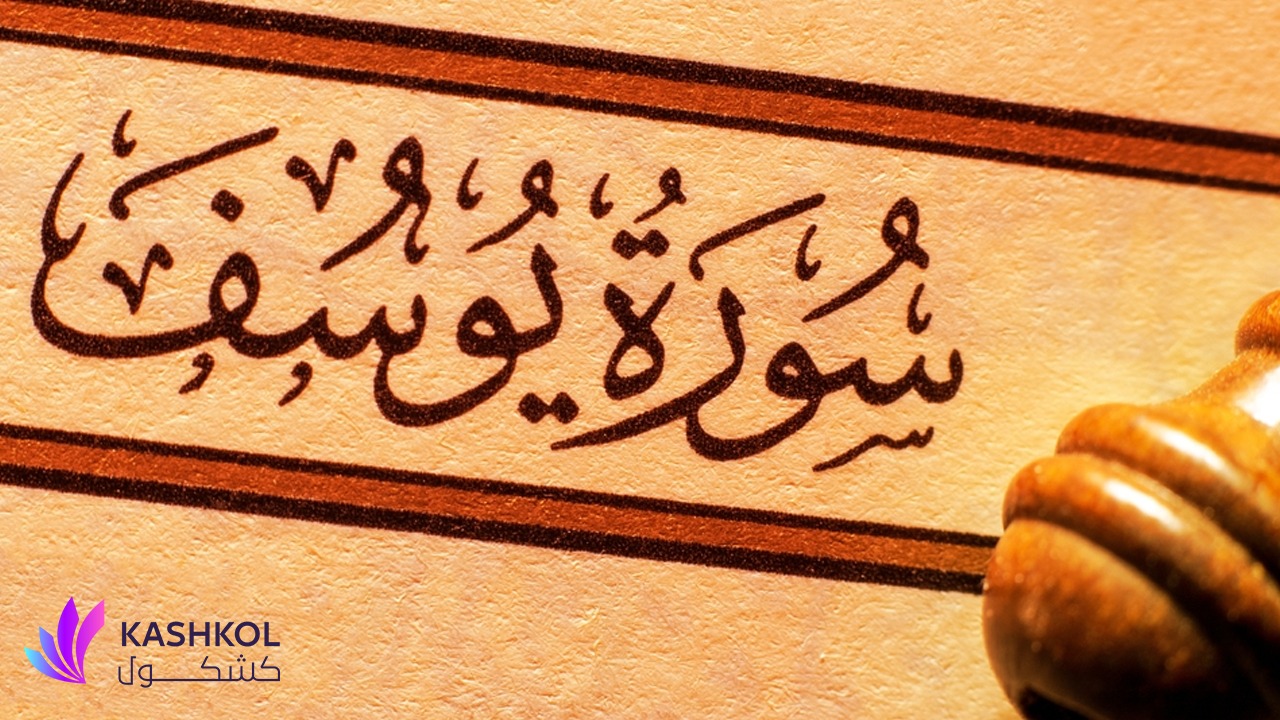 سُورَةُ يُوسُفَ
KASHKOL
كشكول